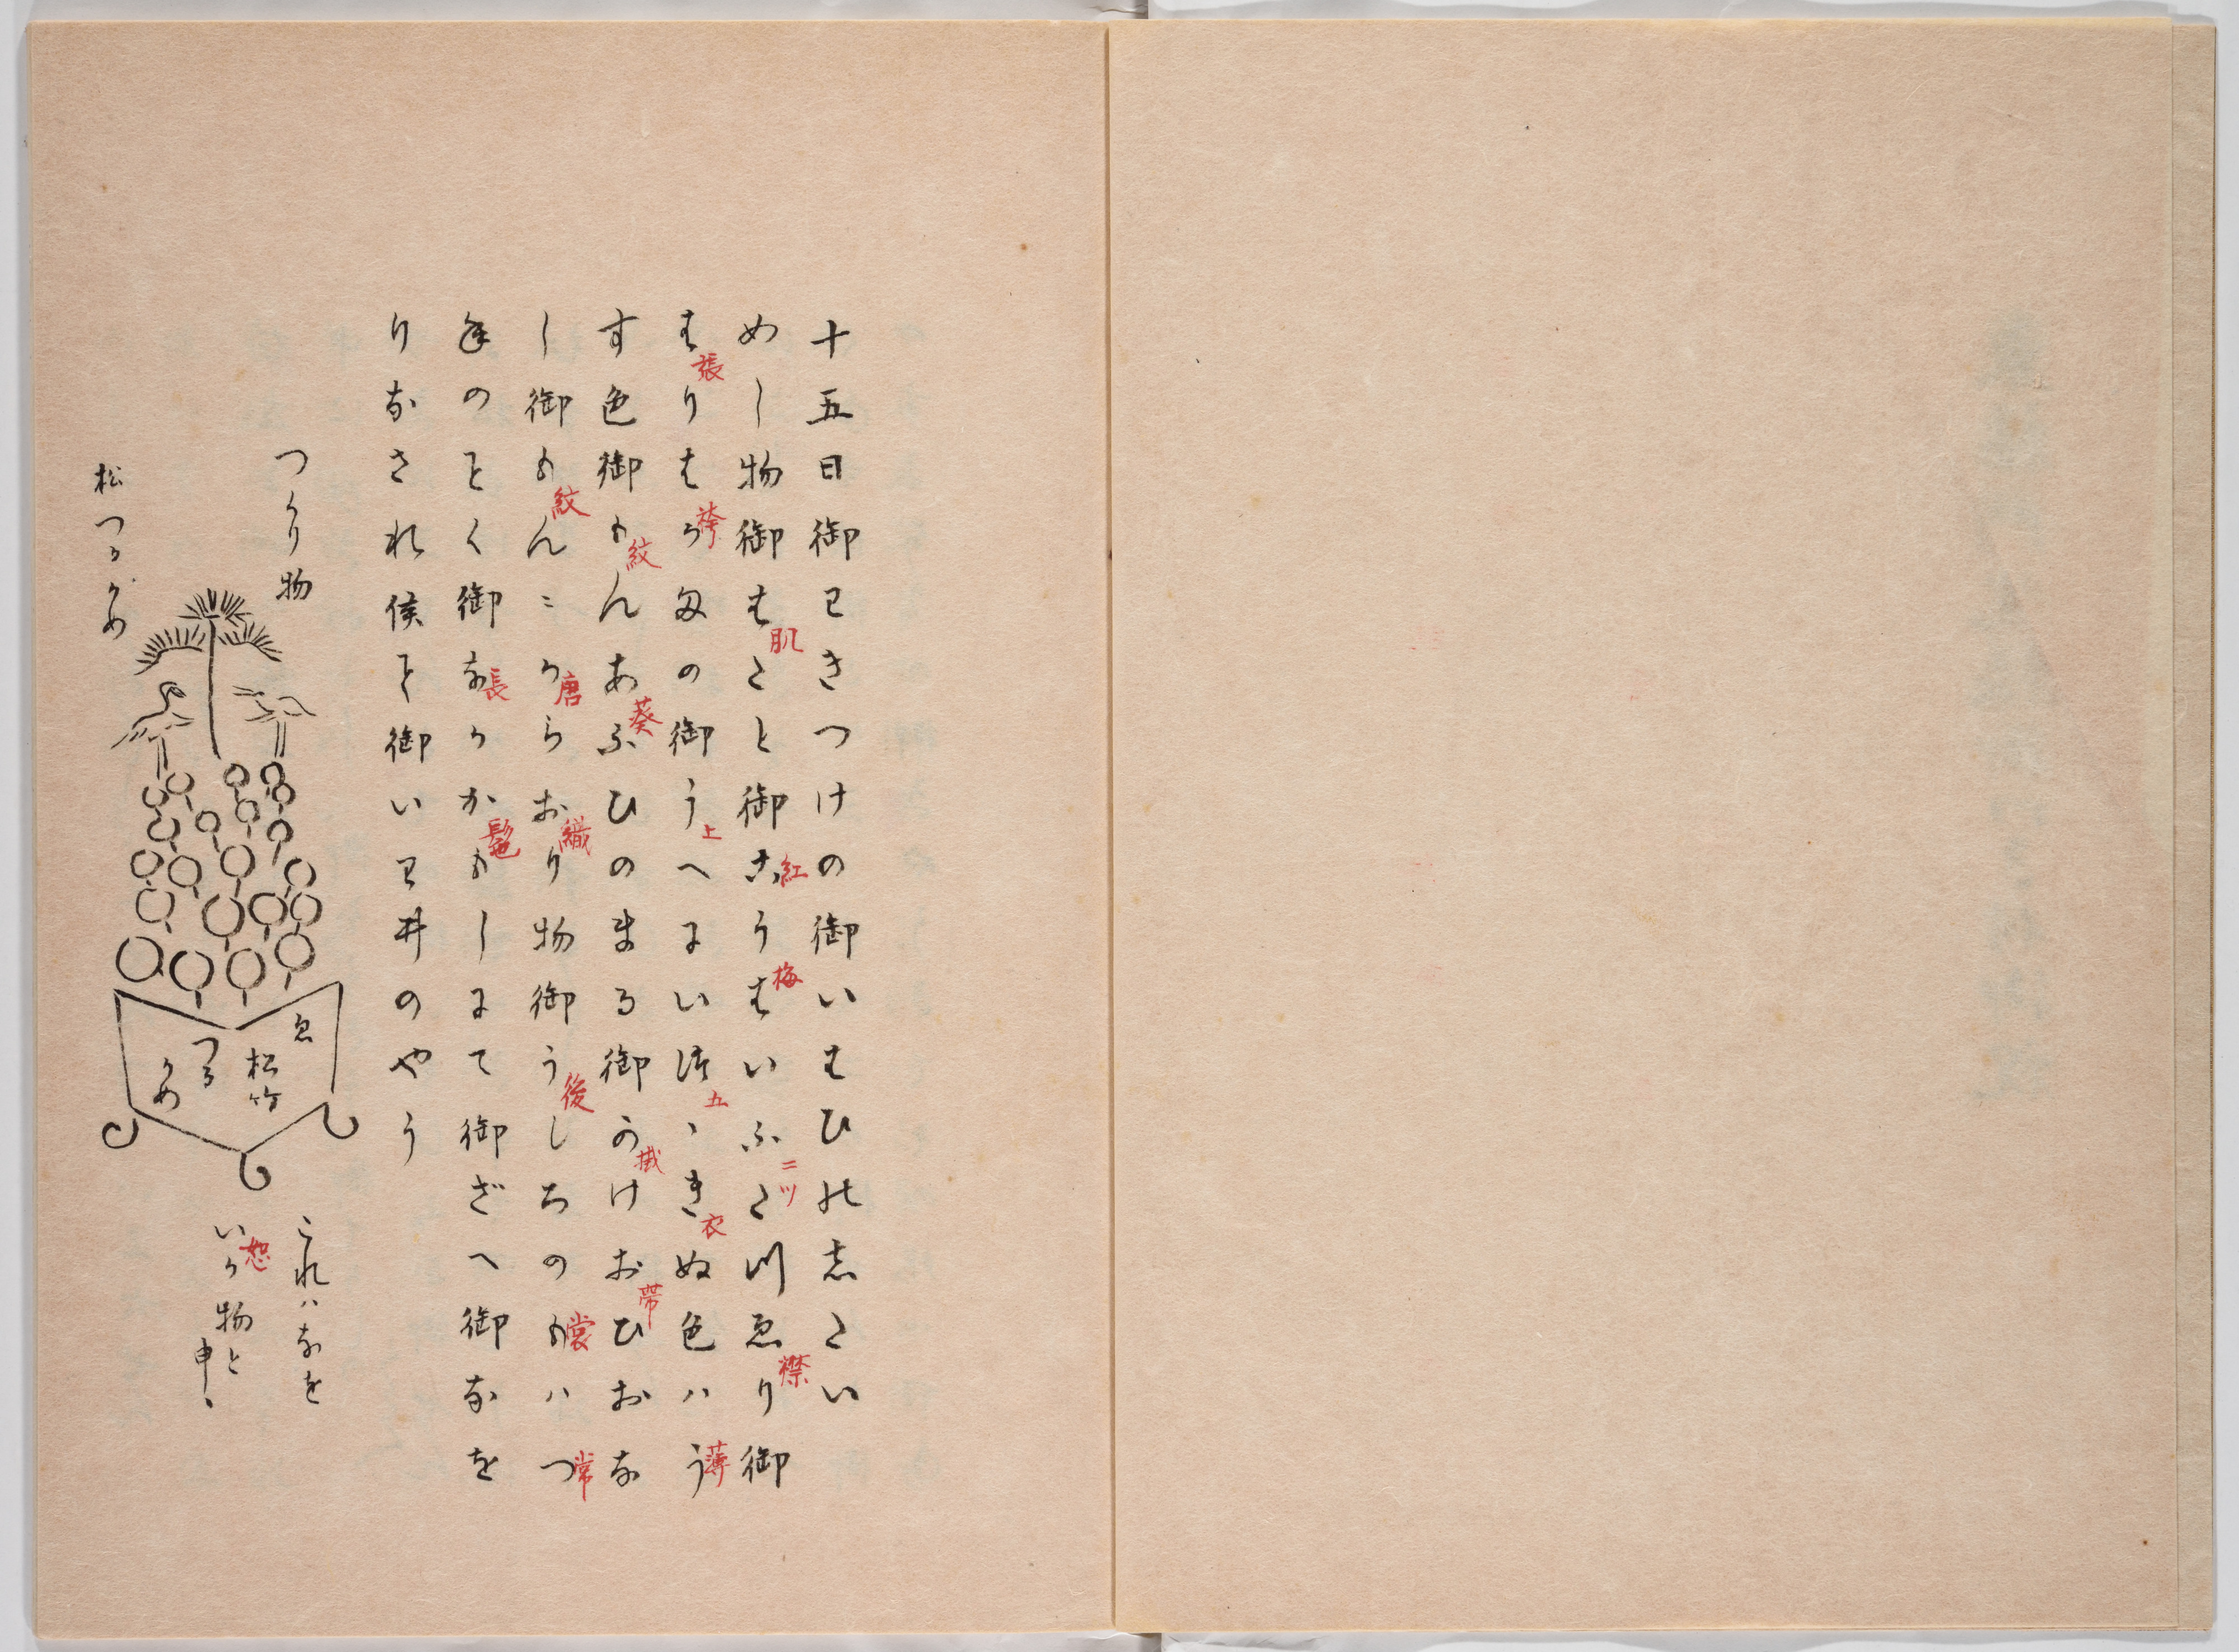 十五日御わきつけの御いはひのしたい
めし物御はたと御こうはいふたつゑり御
肌 紅 梅 二ツ 襟
はりはかまの御うへにいつゝきぬ色ハう
張 袴 上 五 衣 薄
す色御もんあふひのまる御かけおひおな
紋 葵 掛 帯
し御もんにからおり物御うしろのもハつ
紋 唐 織 後 裳 常
ねのことく御なかかもしにて御ざへ御なを
長 髢
りなされ候こと御いわ井のやう
つくり物
松つるかめ
ゑ
松竹
つる
かめ
これハなを
いか物と
恕
申ゝ